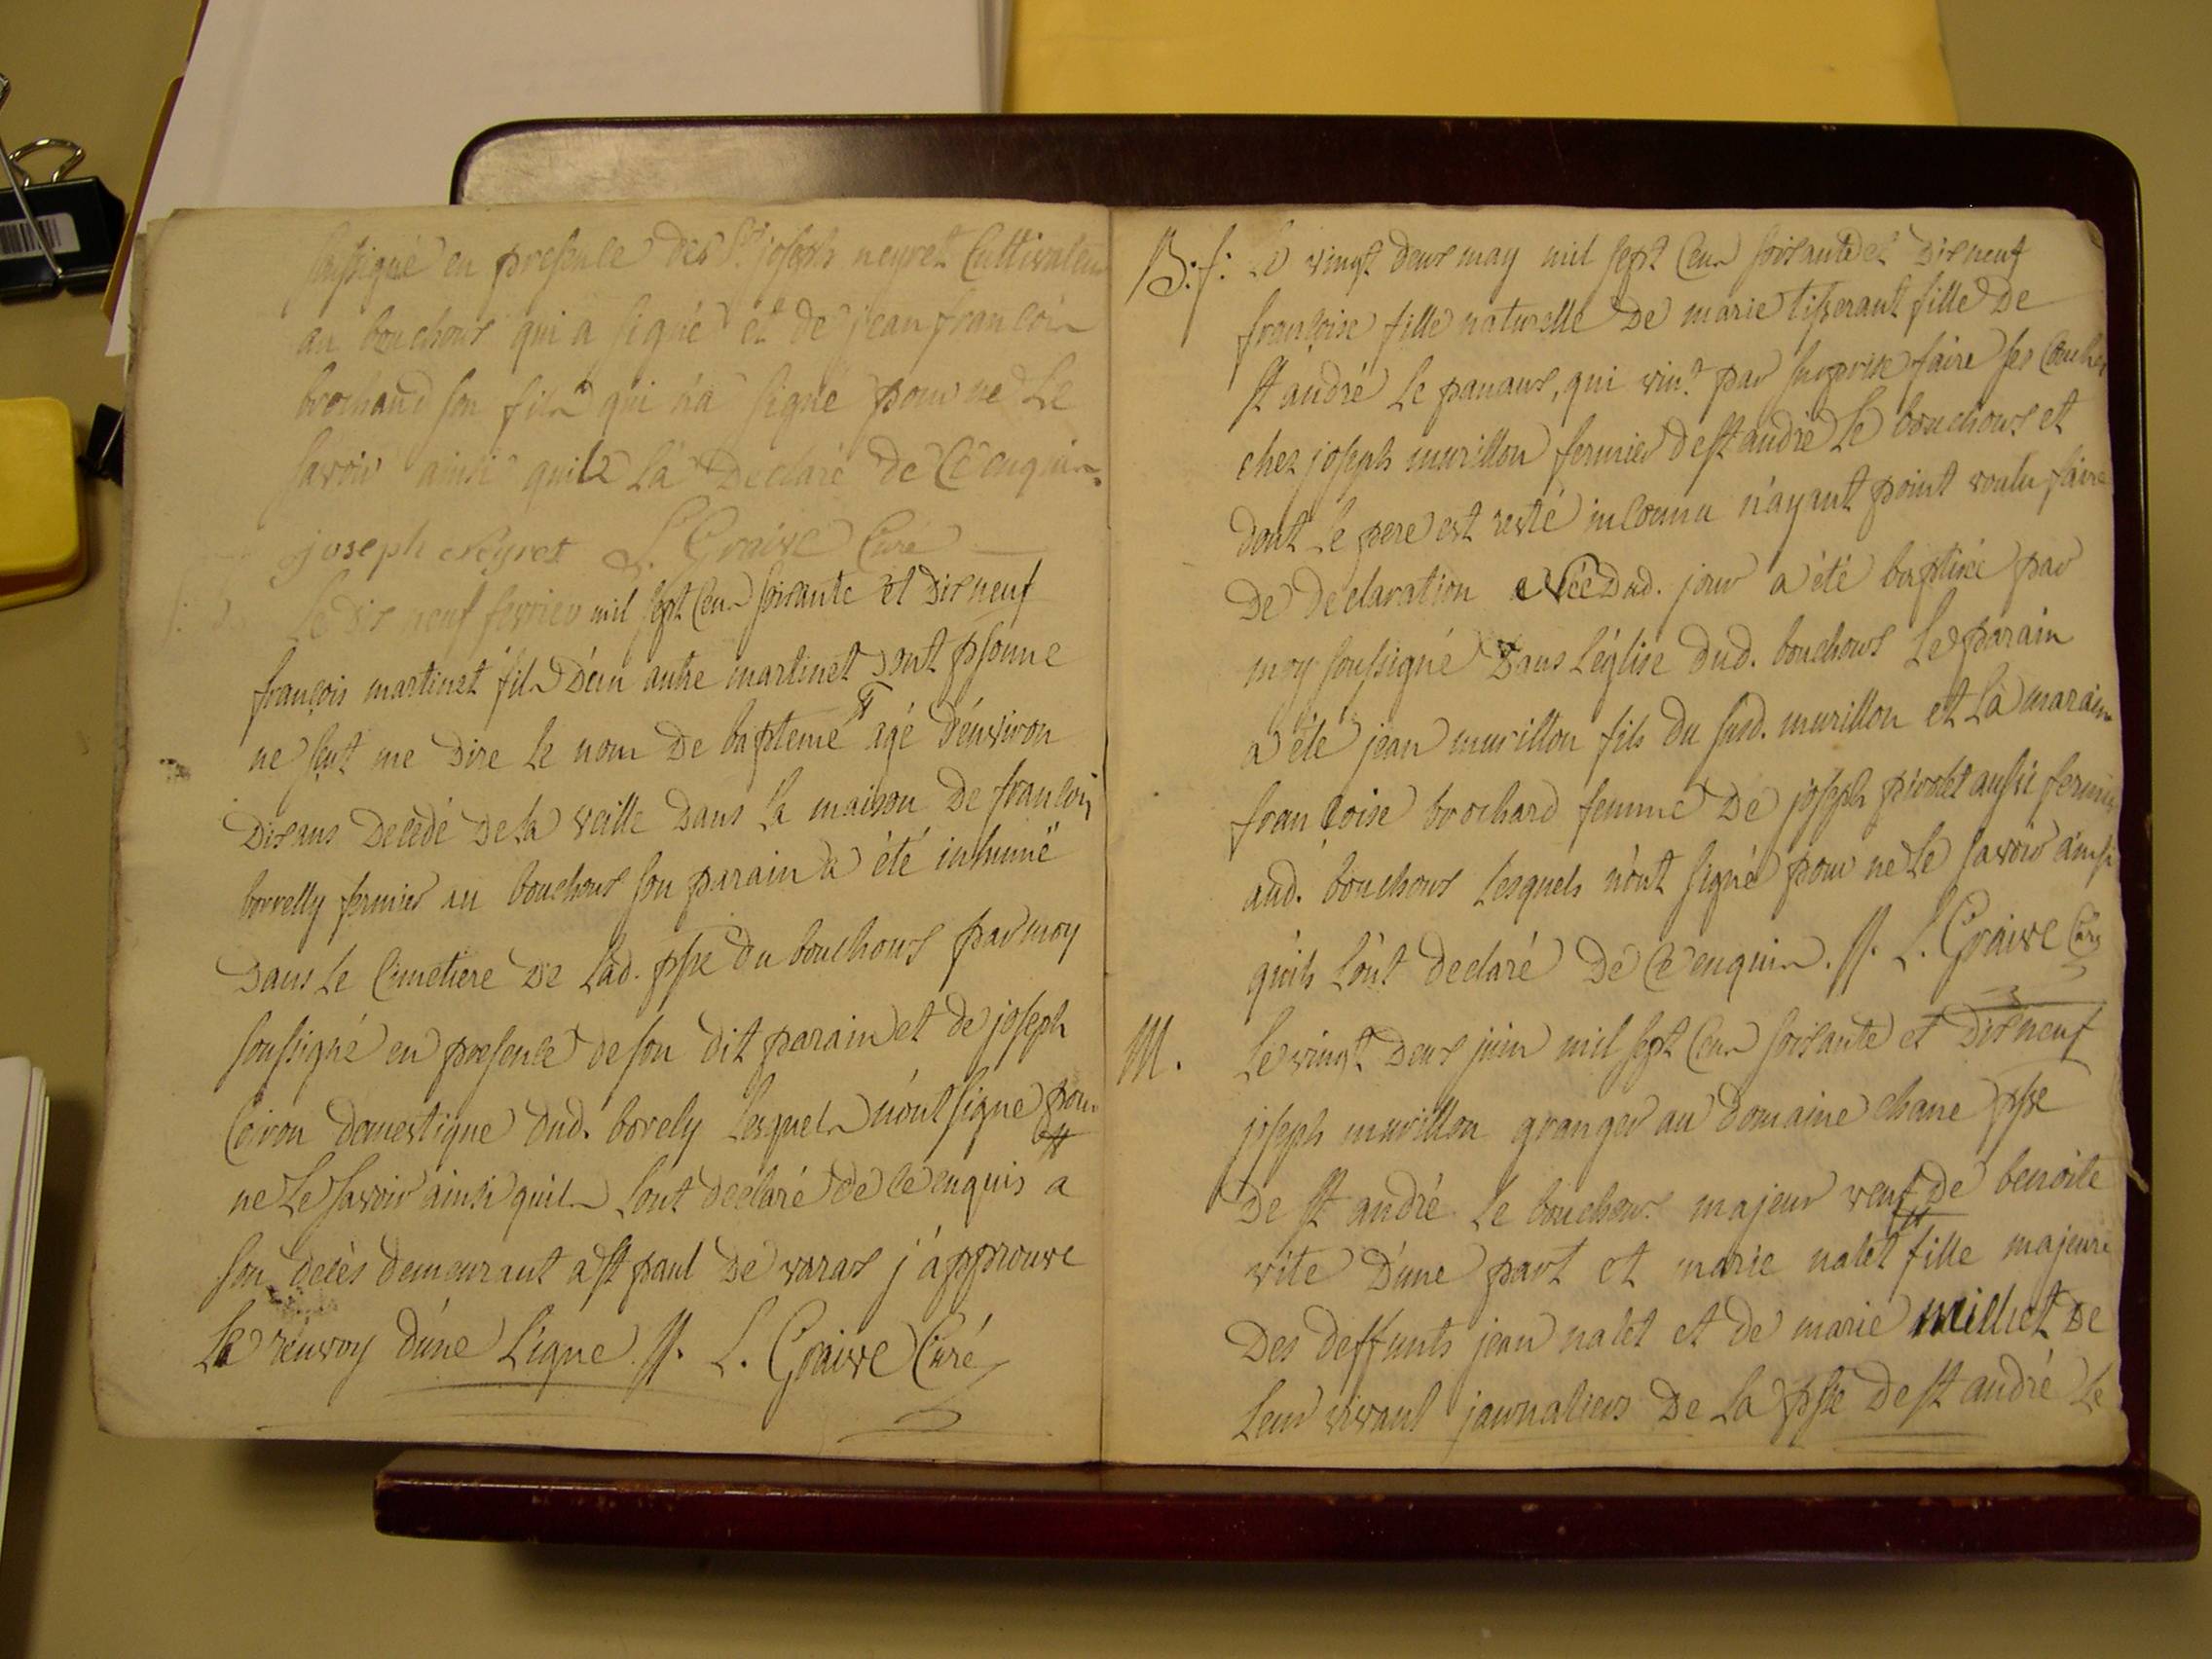 soussigné en presence des Sr joseph neyret Cultivateur
au bouchoux qui a signé et de jean francois
brochand son fils qui n'a signé pour ne Le
savoir ainsi quil L'a Declaré de Ce enquis.
joseph Neyret L. Graive Curé
Le dix neuf fevrier mil sept Cens soixante et dix neuf
françois martinet fils D'un autre martinet dont psonne
ne sçut me dire le nom de bapteme agé d'environ
dix ans decedé de la veille dans la maison de francois
borrelly fermier au bouchoux son parain a été inhumé
dans le Cimetiere de Lad. psse du bouchoux par moy
soussigné en presence de son dit parain et de joseph
Ciron domestique dud. borely Lesquels n'ont signé pour
ne Le savoir ainsi quils L'ont declaré de ce enquis a
son decès demeurant a st paul de varax j'approuve
Le renvoy d'une Ligne ∬. L. Graive Curé
B. f. Le vingt deux may mil sept Cens soixante et dix neuf
françoise fille naturelle de marie tisserant fille de
st andré le panoux, qui vint par surprise faire ses Couches
chez joseph murillon fermier de st andré le bouchoux et
dont le pere est resté inconnu n'ayant point voulu faire
de declaration née dud. jour a été baptisée par
moy soussigné dans l'église dud. bouchoux Le parain
a été jean murillon fils du susd. murillon et La maraine
francoise brochard femme de joseph pirodet aussi fermier
aud. bouchoux lesquels n'ont signé pour ne Le savoir ainsi
qu'ils L'ont declaré de Ce enquis. ∬. L. Graive Curé
M. Le vingt deux juin mil sept Cens soixante et dix neuf
joseph murillon granger au domaine chane psse
de st andré le bouchoux majeur veuf de benoite
vite d'une part et marie nalet fille majeure
des deffunts jean nalet et de marie milliet de
leur vivant journaliers de La psse de st andré Le